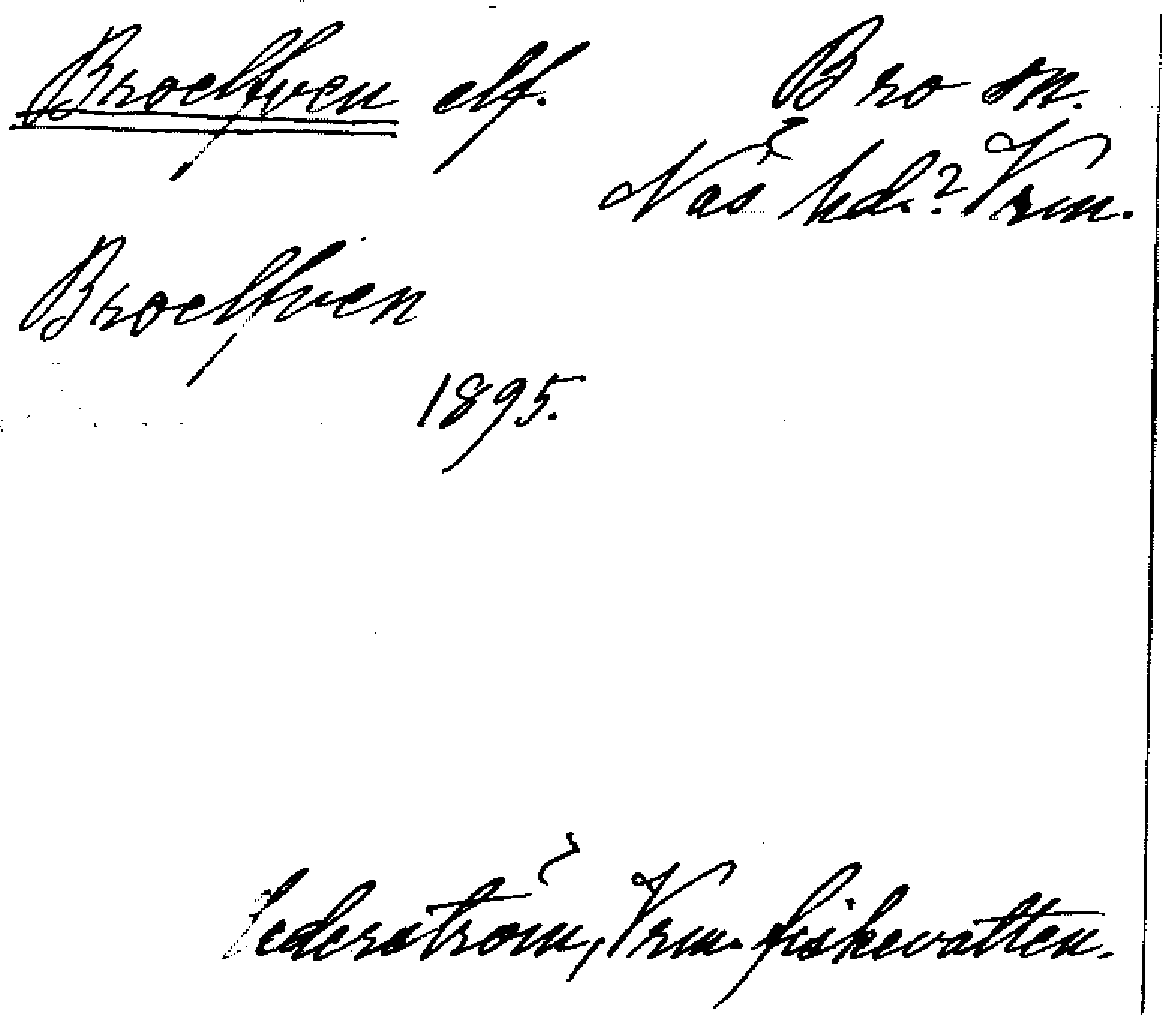 Broelfven elf. Bro sn.
Näs hd.? Vrm.
Broelfven
1895.
Cederström, Vrm. fiskevatten.